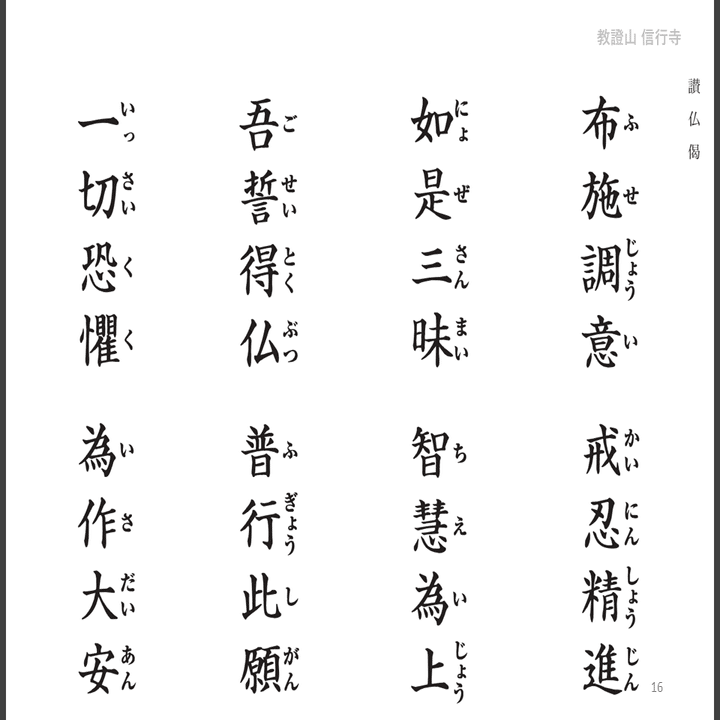 教證山 信行寺
讃仏偈
布施調意 戒忍精進
ふせじょうい かいにんしょうじん
如是三昧 智慧為上
にょぜさんまい ちえいじょう
吾誓得仏 普行此願
ごせいとくぶつ ふぎょうしがん
一切恐懼 為作大安
いっさいくく いさだいあん
16